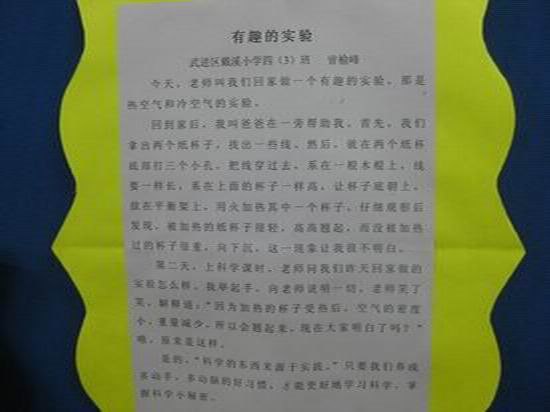 有趣的实验
武进区戴溪小学四（3）班 曾榆峰
今天，老师叫我们回家做一个有趣的实验，那是
热空气和冷空气的实验。
回到家后，我叫爸爸在一旁帮助我。首先，我们
拿出两个纸杯子，找出一些线。然后，就在两个纸杯
底部打三个小孔，把线穿过去，系在一根木棍上，线
要一样长，系在上面的杯子一样高，让杯子底朝上，
放在平衡架上。用火加热其中一个杯子，仔细观察后
发现，被加热的纸杯子很轻，高高翘起，而没被加热
过的杯子很重，向下沉。这一现象让我很不明白。
第二天，上科学课时，老师问我们昨天回家做的
实验怎么样。我举起手，向老师说明一切，老师笑了
笑，解释道：“因为加热的杯子受热后，空气的密度
小，重量减少，所以会翘起来。现在大家明白了吗？”
哦，原来是这样。
是的，“科学的东西来源于实践。”只要我们养成
多动手，多动脑的好习惯，才能更好地学习科学，掌
握科学小秘密。